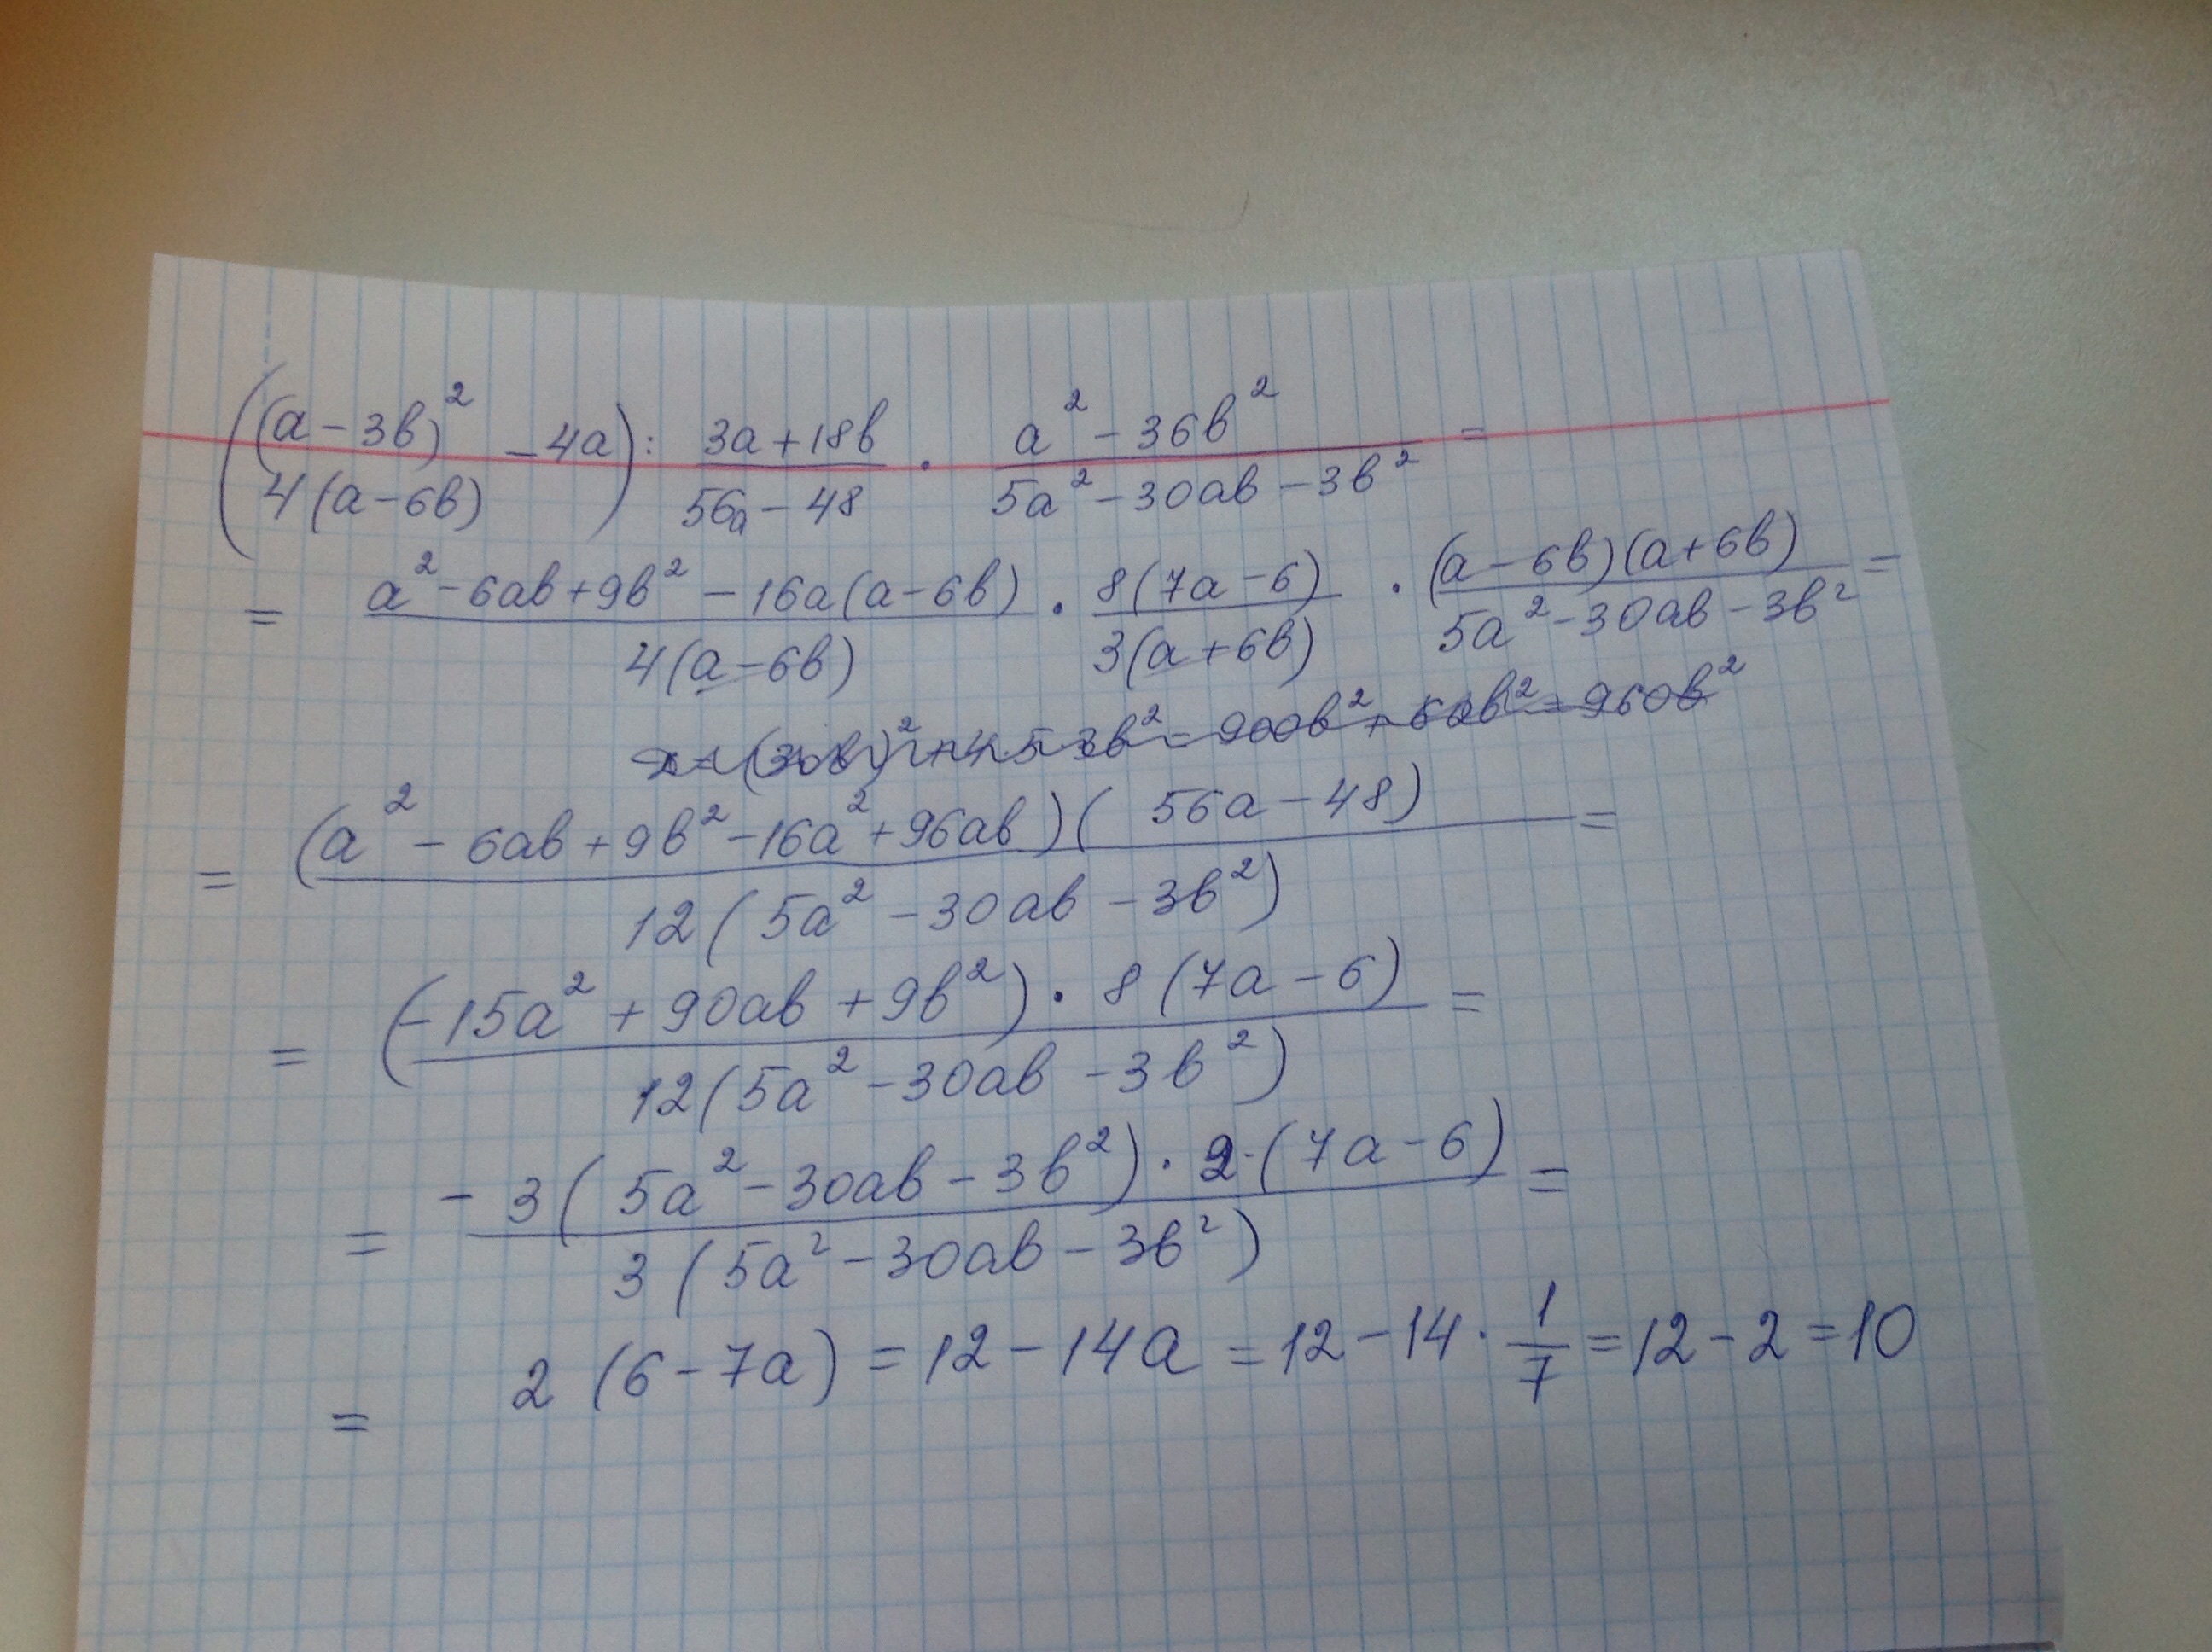 ((a-3b)²/4(a-6b) - 4a) : (3a+18b)/(56a-48) · (a²-36b²)/(5a²-30ab-3b²) =
= (a²-6ab+9b²-16a(a-6b))/(4(a-6b)) · 8(7a-6)/(3(a+6b)) · (a-6b)(a+6b)/(5a²-30ab-3b²) =
= 900b² + 60b² = 960b²
= (a²-6ab+9b²-16a²+96ab)(56a-48)/(12(5a²-30ab-3b²)) =
= (-15a²+90ab+9b²)·8(7a-6)/(12(5a²-30ab-3b²)) =
= -3(5a²-30ab-3b²)·2·(7a-6)/(3(5a²-30ab-3b²)) =
= 2(6-7a) = 12-14a = 12-14·1/7 = 12-2 = 10